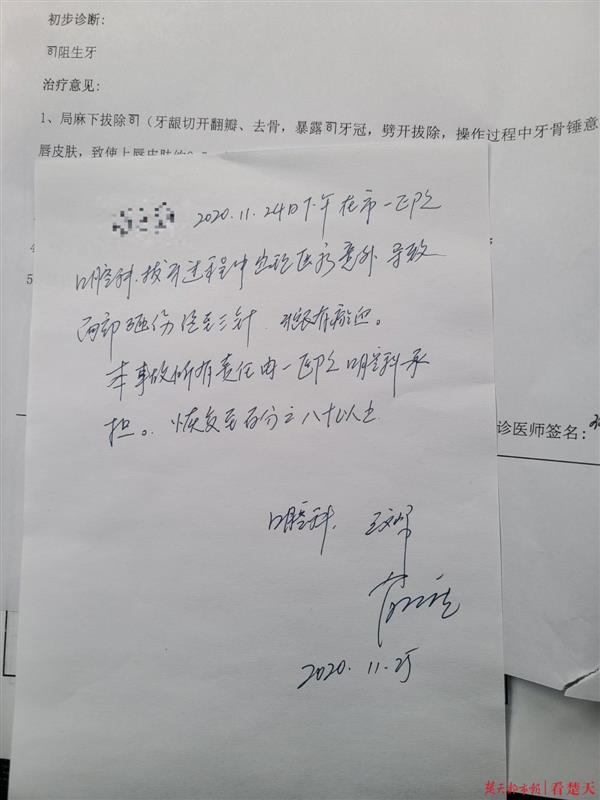 初步诊断:
阻生牙
治疗意见:
1、局麻下拔除（牙龈切开翻瓣、去骨，暴露牙冠，劈开拔除，操作过程中牙骨锤意
唇皮肤，致使上唇皮肤
2020.11.24日下午在市一医院
口腔科.拔牙过程中出现医疗意外 导致
面部砸伤缝至三针
本事故所有责任由一医院口腔科承
担。恢复至百分之八十以上
诊医师签名:
口腔科.
2020.11.25
楚天都市报|看楚天